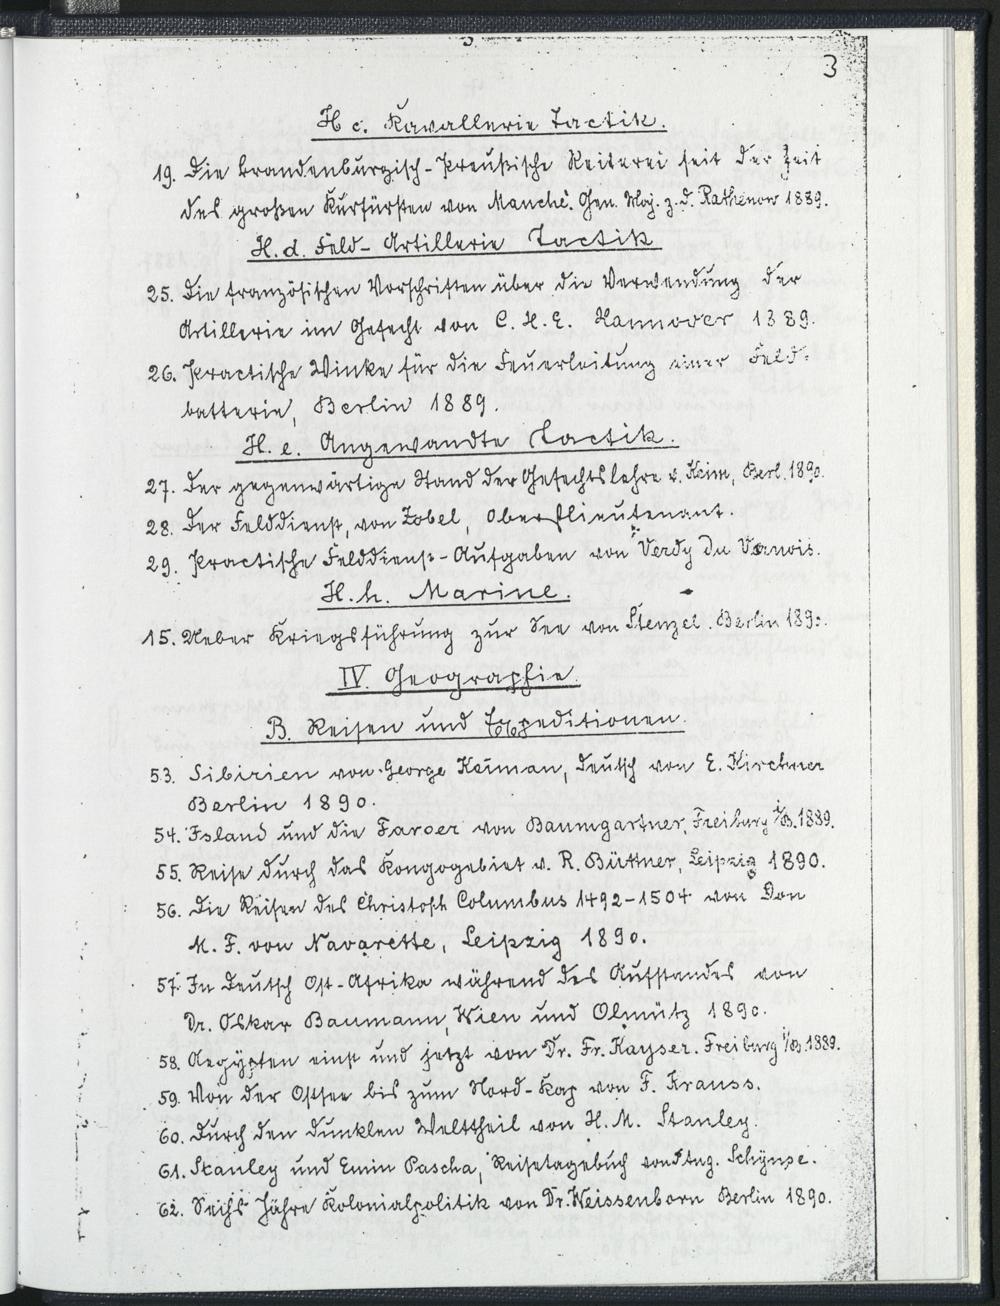 3
H c. Kavallerie Tactik.
19. Die brandenburgisch-Preußische Reiterei seit der Zeit
des großen Kurfürsten von Manché. Gen. Maj. z. d. Rathenow 1889.
H. d. Feld-Artillerie Tactik
25. Die französischen Vorschriften über die Verwendung der
Artillerie im Gefecht von C. H. E. Hannover 1889.
26. Practische Winke für die Feuerleitung einer Feld-
batterie, Berlin 1889.
H. e. Angewandte Tactik.
27. Der gegenwärtige Stand der Gefechtslehre v. Keim, Berl. 1890.
28. Der Felddienst, von Zobel, Oberstlieutenant.
29. Practische Felddienst-Aufgaben von Verdy du Vernois.
H. h. Marine.
15. Ueber Kriegsführung zur See von Stenzel. Berlin 1890.
IV. Geographie.
B. Reisen und Expeditionen.
53. Sibirien von George Kennan, deutsch von E. Kirchner
Berlin 1890.
54. Island und die Faroer von Baumgartner, Freiburg i/B. 1889.
55. Reise durch das Kongogebiet v. R. Büttner, Leipzig 1890.
56. Die Reisen des Christoph Columbus 1492-1504 von Don
M. F. von Navarette, Leipzig 1890.
57. In Deutsch Ost-Afrika während des Aufstandes von
Dr. Oskar Baumann, Wien und Olmütz 1890.
58. Aegypten einst und jetzt von Dr. Fr. Kayser. Freiburg i/B. 1889.
59. Von der Ostsee bis zum Nord-Kap von F. Krauss.
60. Durch den dunklen Welttheil von H. M. Stanley.
61. Stanley und Emin Pascha, Reisetagebuch von Aug. Schynse.
62. Sechs Jahre Kolonialpolitik von Dr. Weissenborn Berlin 1890.